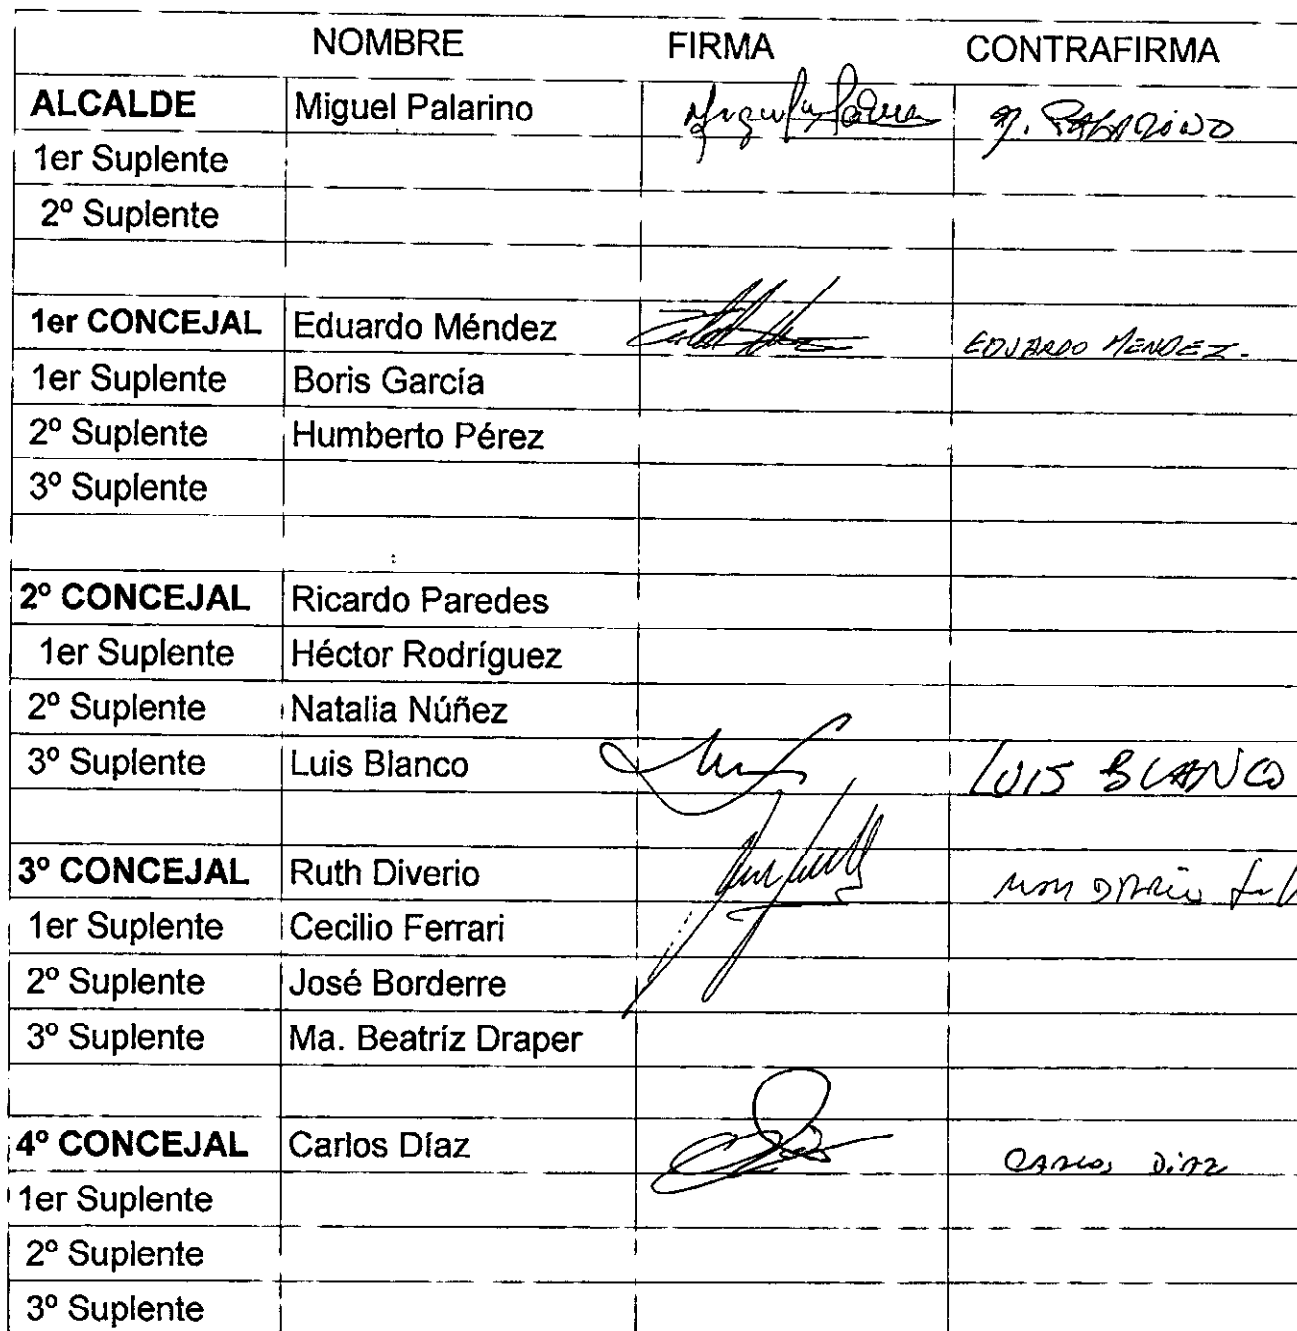 NOMBRE FIRMA CONTRAFIRMA
ALCALDE Miguel Palarino M. PALARINO
1er Suplente
2º Suplente
1er CONCEJAL Eduardo Méndez EDUARDO MENDEZ.
1er Suplente Boris García
2º Suplente Humberto Pérez
3º Suplente
2º CONCEJAL Ricardo Paredes
1er Suplente Héctor Rodríguez
2º Suplente Natalia Núñez
3º Suplente Luis Blanco LUIS BLANCO
3º CONCEJAL Ruth Diverio
1er Suplente Cecilio Ferrari
2º Suplente José Borderre
3º Suplente Ma. Beatríz Draper
4º CONCEJAL Carlos Díaz CARLOS DiAZ
1er Suplente
2º Suplente
3º Suplente